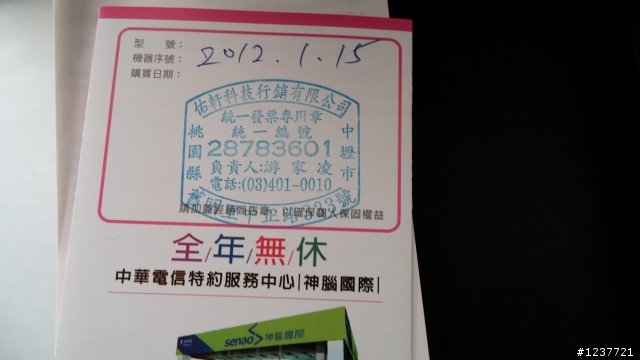 型 號：
機器序號：
購買日期：
2012.1.15
佑軒科技行銷有限公司
統一發票專用章
統一編號
28783601
負責人:游家凌
電話:(03)401-0010
桃園縣
中壢市
請加蓋經銷商店章，以確保個人保固權益
全/年/無/休
中華電信特約服務中心|神腦國際|
senao 神腦國際
#1237721